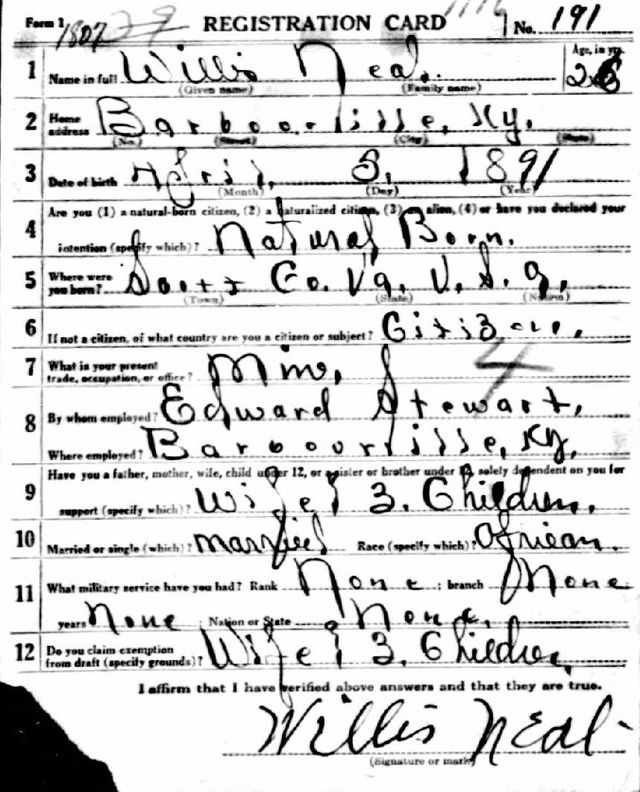 Form 1 1807 29 REGISTRATION CARD No. 191
1 Name in full Willis Neal. Age, in yrs. 26
(Given name) (Family name)
2 Home address Barbourville, Ky.
(No.) (Street) (City) (State)
3 Date of birth April, 3, 1891
(Month) (Day) (Year)
4 Are you (1) a natural-born citizen, (2) a naturalized citizen, (3) alien, (4) or have you declared your
intention (specify which)? Natural Born.
5 Where were you born? Scott Co. Va. U. S. a,
(Town) (State) (Nation)
6 If not a citizen, of what country are you a citizen or subject? Citizen,
7 What is your present trade, occupation, or office? 4
8 By whom employed? Edward Stewart,
Where employed? Barbourville, Ky,
9 Have you a father, mother, wife, child under 12, or a sister or brother under 12, solely dependent on you for
support (specify which)? Wife & 3. Children,
10 Married or single (which)? married Race (specify which)? African.
11 What military service have you had? Rank None ; branch None
years None Nation or State None.
12 Do you claim exemption from draft (specify grounds)? Wife & 3. Children,
I affirm that I have verified above answers and that they are true.
Willis Neal
(Signature or mark)